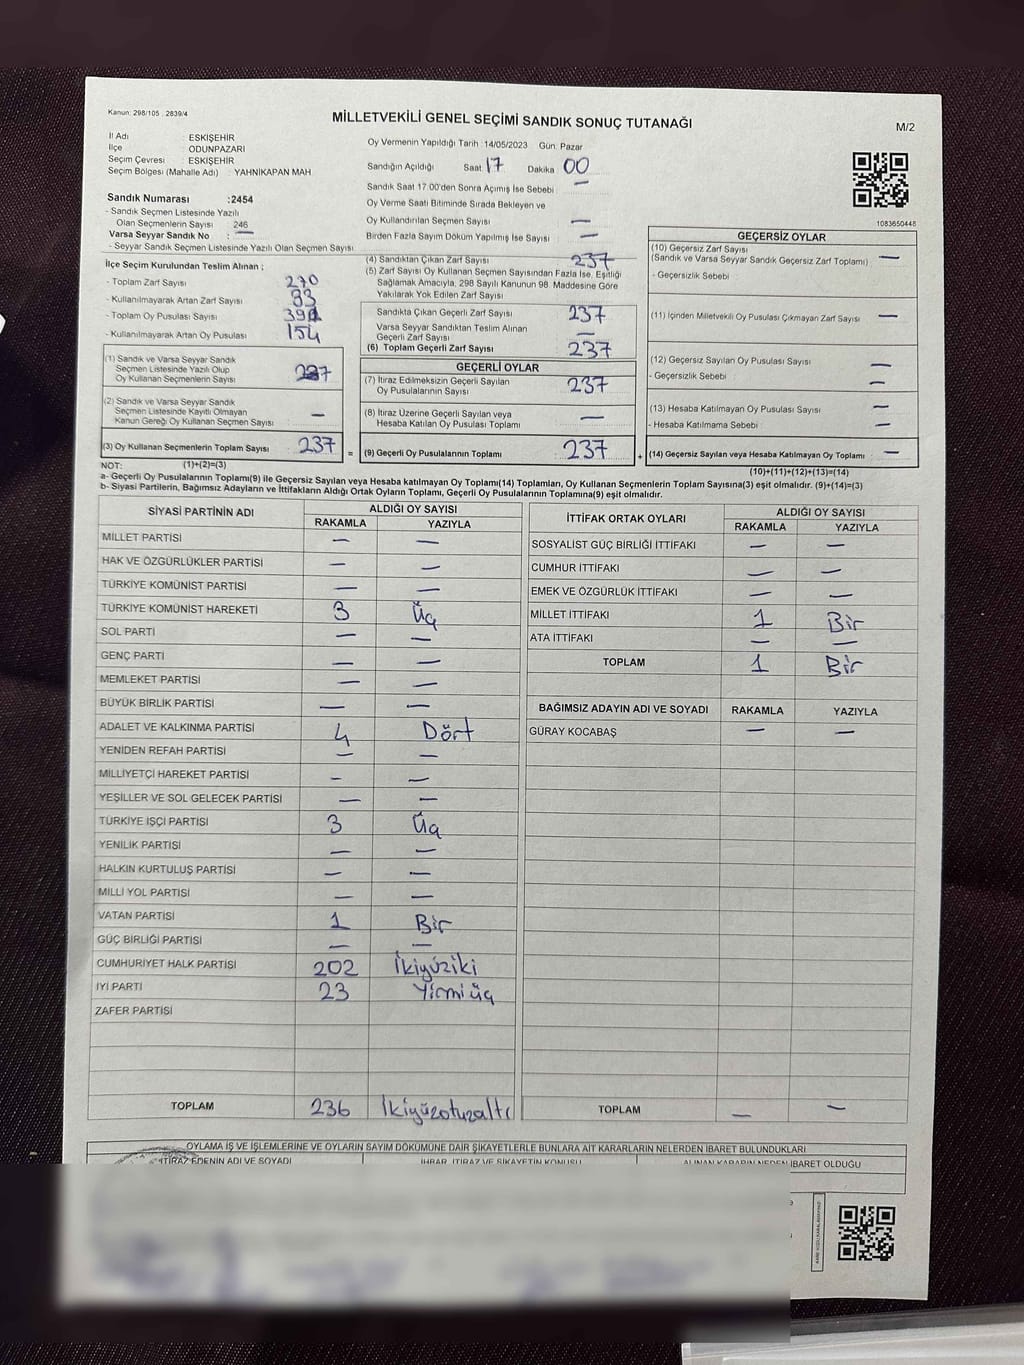 Kanun: 298/105 , 2839/4
MİLLETVEKİLİ GENEL SEÇİMİ SANDIK SONUÇ TUTANAĞI
M/2
İl Adı : ESKİŞEHİR
İlçe : ODUNPAZARI
Seçim Çevresi : ESKİŞEHİR
Seçim Bölgesi (Mahalle Adı) : YAHNİKAPAN MAH
Oy Vermenin Yapıldığı Tarih 14/05/2023 Gün: Pazar
Sandığın Açıldığı Saat 17 Dakika 00
Sandık Saat 17:00'den Sonra Açımış İse Sebebi : —
Oy Verme Saati Bitiminde Sırada Bekleyen ve
Oy Kullandırılan Seçmen Sayısı —
Birden Fazla Sayım Döküm Yapılmış İse Sayısı —
1083650448
Sandık Numarası :2454
- Sandık Seçmen Listesinde Yazılı
Olan Seçmenlerin Sayısı 246
Varsa Seyyar Sandık No : —
- Seyyar Sandık Seçmen Listesinde Yazılı Olan Seçmen Sayısı
İlçe Seçim Kurulundan Teslim Alınan ;
- Toplam Zarf Sayısı 270
- Kullanılmayarak Artan Zarf Sayısı 33
- Toplam Oy Pusulası Sayısı 391
- Kullanılmayarak Artan Oy Pusulası 154
(1) Sandık ve Varsa Seyyar Sandık
Seçmen Listesinde Yazılı Olup
Oy Kullanan Seçmenlerin Sayısı 237
(2) Sandık ve Varsa Seyyar Sandık
Seçmen Listesinde Kayıtlı Olmayan
Kanun Gereği Oy Kullanan Seçmen Sayısı —
(3) Oy Kullanan Seçmenlerin Toplam Sayısı 237 =
(4) Sandıktan Çıkan Zarf Sayısı 237
(5) Zarf Sayısı Oy Kullanan Seçmen Sayısından Fazla İse, Eşitliği
Sağlamak Amacıyla, 298 Sayılı Kanunun 98. Maddesine Göre
Yakılarak Yok Edilen Zarf Sayısı
Sandıkta Çıkan Geçerli Zarf Sayısı 237
Varsa Seyyar Sandıktan Teslim Alınan
Geçerli Zarf Sayısı —
(6) Toplam Geçerli Zarf Sayısı 237
GEÇERLİ OYLAR
(7) İtiraz Edilmeksizin Geçerli Sayılan
Oy Pusulalarının Sayısı 237
(8) İtiraz Üzerine Geçerli Sayılan veya
Hesaba Katılan Oy Pusulası Toplamı —
(9) Geçerli Oy Pusulalarının Toplamı 237 +
GEÇERSİZ OYLAR
(10) Geçersiz Zarf Sayısı
(Sandık ve Varsa Seyyar Sandık Geçersiz Zarf Toplamı) —
- Geçersizlik Sebebi
(11) İçinden Milletvekili Oy Pusulası Çıkmayan Zarf Sayısı —
(12) Geçersiz Sayılan Oy Pusulası Sayısı —
- Geçersizlik Sebebi —
(13) Hesaba Katılmayan Oy Pusulası Sayısı —
- Hesaba Katılmama Sebebi —
(14) Geçersiz Sayılan veya Hesaba Katılmayan Oy Toplamı —
NOT: (1)+(2)=(3)
(10)+(11)+(12)+(13)=(14)
a- Geçerli Oy Pusulalarının Toplamı(9) ile Geçersiz Sayılan veya Hesaba Katılmayan Oy Toplamı(14) Toplamları, Oy Kullanan Seçmenlerin Toplam Sayısına(3) eşit olmalıdır. (9)+(14)=(3)
b- Siyasi Partilerin, Bağımsız Adayların ve İttifakların Aldığı Ortak Oyların Toplamı, Geçerli Oy Pusulalarının Toplamına(9) eşit olmalıdır.
SİYASİ PARTİNİN ADI ALDIĞI OY SAYISI
RAKAMLA YAZIYLA
MİLLET PARTİSİ — —
HAK VE ÖZGÜRLÜKLER PARTİSİ — —
TÜRKİYE KOMÜNİST PARTİSİ — —
TÜRKİYE KOMÜNİST HAREKETİ 3 Üç
SOL PARTİ — —
GENÇ PARTİ — —
MEMLEKET PARTİSİ — —
BÜYÜK BİRLİK PARTİSİ — —
ADALET VE KALKINMA PARTİSİ 4 Dört
YENİDEN REFAH PARTİSİ — —
MİLLİYETÇİ HAREKET PARTİSİ — —
YEŞİLLER VE SOL GELECEK PARTİSİ — —
TÜRKİYE İŞÇİ PARTİSİ 3 Üç
YENİLİK PARTİSİ — —
HALKIN KURTULUŞ PARTİSİ — —
MİLLİ YOL PARTİSİ — —
VATAN PARTİSİ 1 Bir
GÜÇ BİRLİĞİ PARTİSİ — —
CUMHURİYET HALK PARTİSİ 202 İkiyüziki
İYİ PARTİ 23 Yirmiüç
ZAFER PARTİSİ
TOPLAM 236 İkiyüzotuzaltı
İTTİFAK ORTAK OYLARI ALDIĞI OY SAYISI
RAKAMLA YAZIYLA
SOSYALİST GÜÇ BİRLİĞİ İTTİFAKI — —
CUMHUR İTTİFAKI — —
EMEK VE ÖZGÜRLÜK İTTİFAKI — —
MİLLET İTTİFAKI 1 Bir
ATA İTTİFAKI — —
TOPLAM 1 Bir
BAĞIMSIZ ADAYIN ADI VE SOYADI RAKAMLA YAZIYLA
GÜRAY KOCABAŞ — —
TOPLAM — —
OYLAMA İŞ VE İŞLEMLERİNE VE OYLARIN SAYIM DÖKÜMÜNE DAİR ŞİKAYETLERLE BUNLARA AİT KARARLARIN NELERDEN İBARET BULUNDUKLARI
İTİRAZ EDENİN ADI VE SOYADI İHBAR, İTİRAZ VE ŞİKAYETİN KONUSU ALINAN KARARIN NEDEN İBARET OLDUĞU